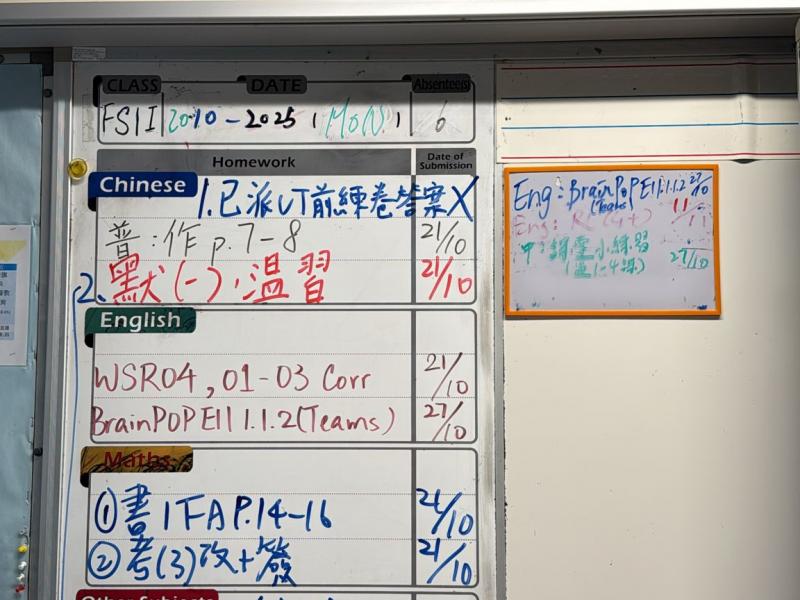 CLASS DATE Absentee(s)
FS1I 20-10-2025 (MON) 6
Homework Date of Submission
Chinese
1. 已派UT前練卷答案 X
普:作 p.7-8 21/10
2. 默(一)·溫習 21/10
English
WSR04, 01-03 Corr 21/10
BrainPOP E11 1.1.2 (Teams) 27/10
Maths
① 書1FA P.14-16 21/10
② 考(3)改+簽 21/10
Other Subjects
Eng: BrainPoP E11.1.1.2 27/10
(Teams)
Eng: 11/11
中: 小練習 27/10